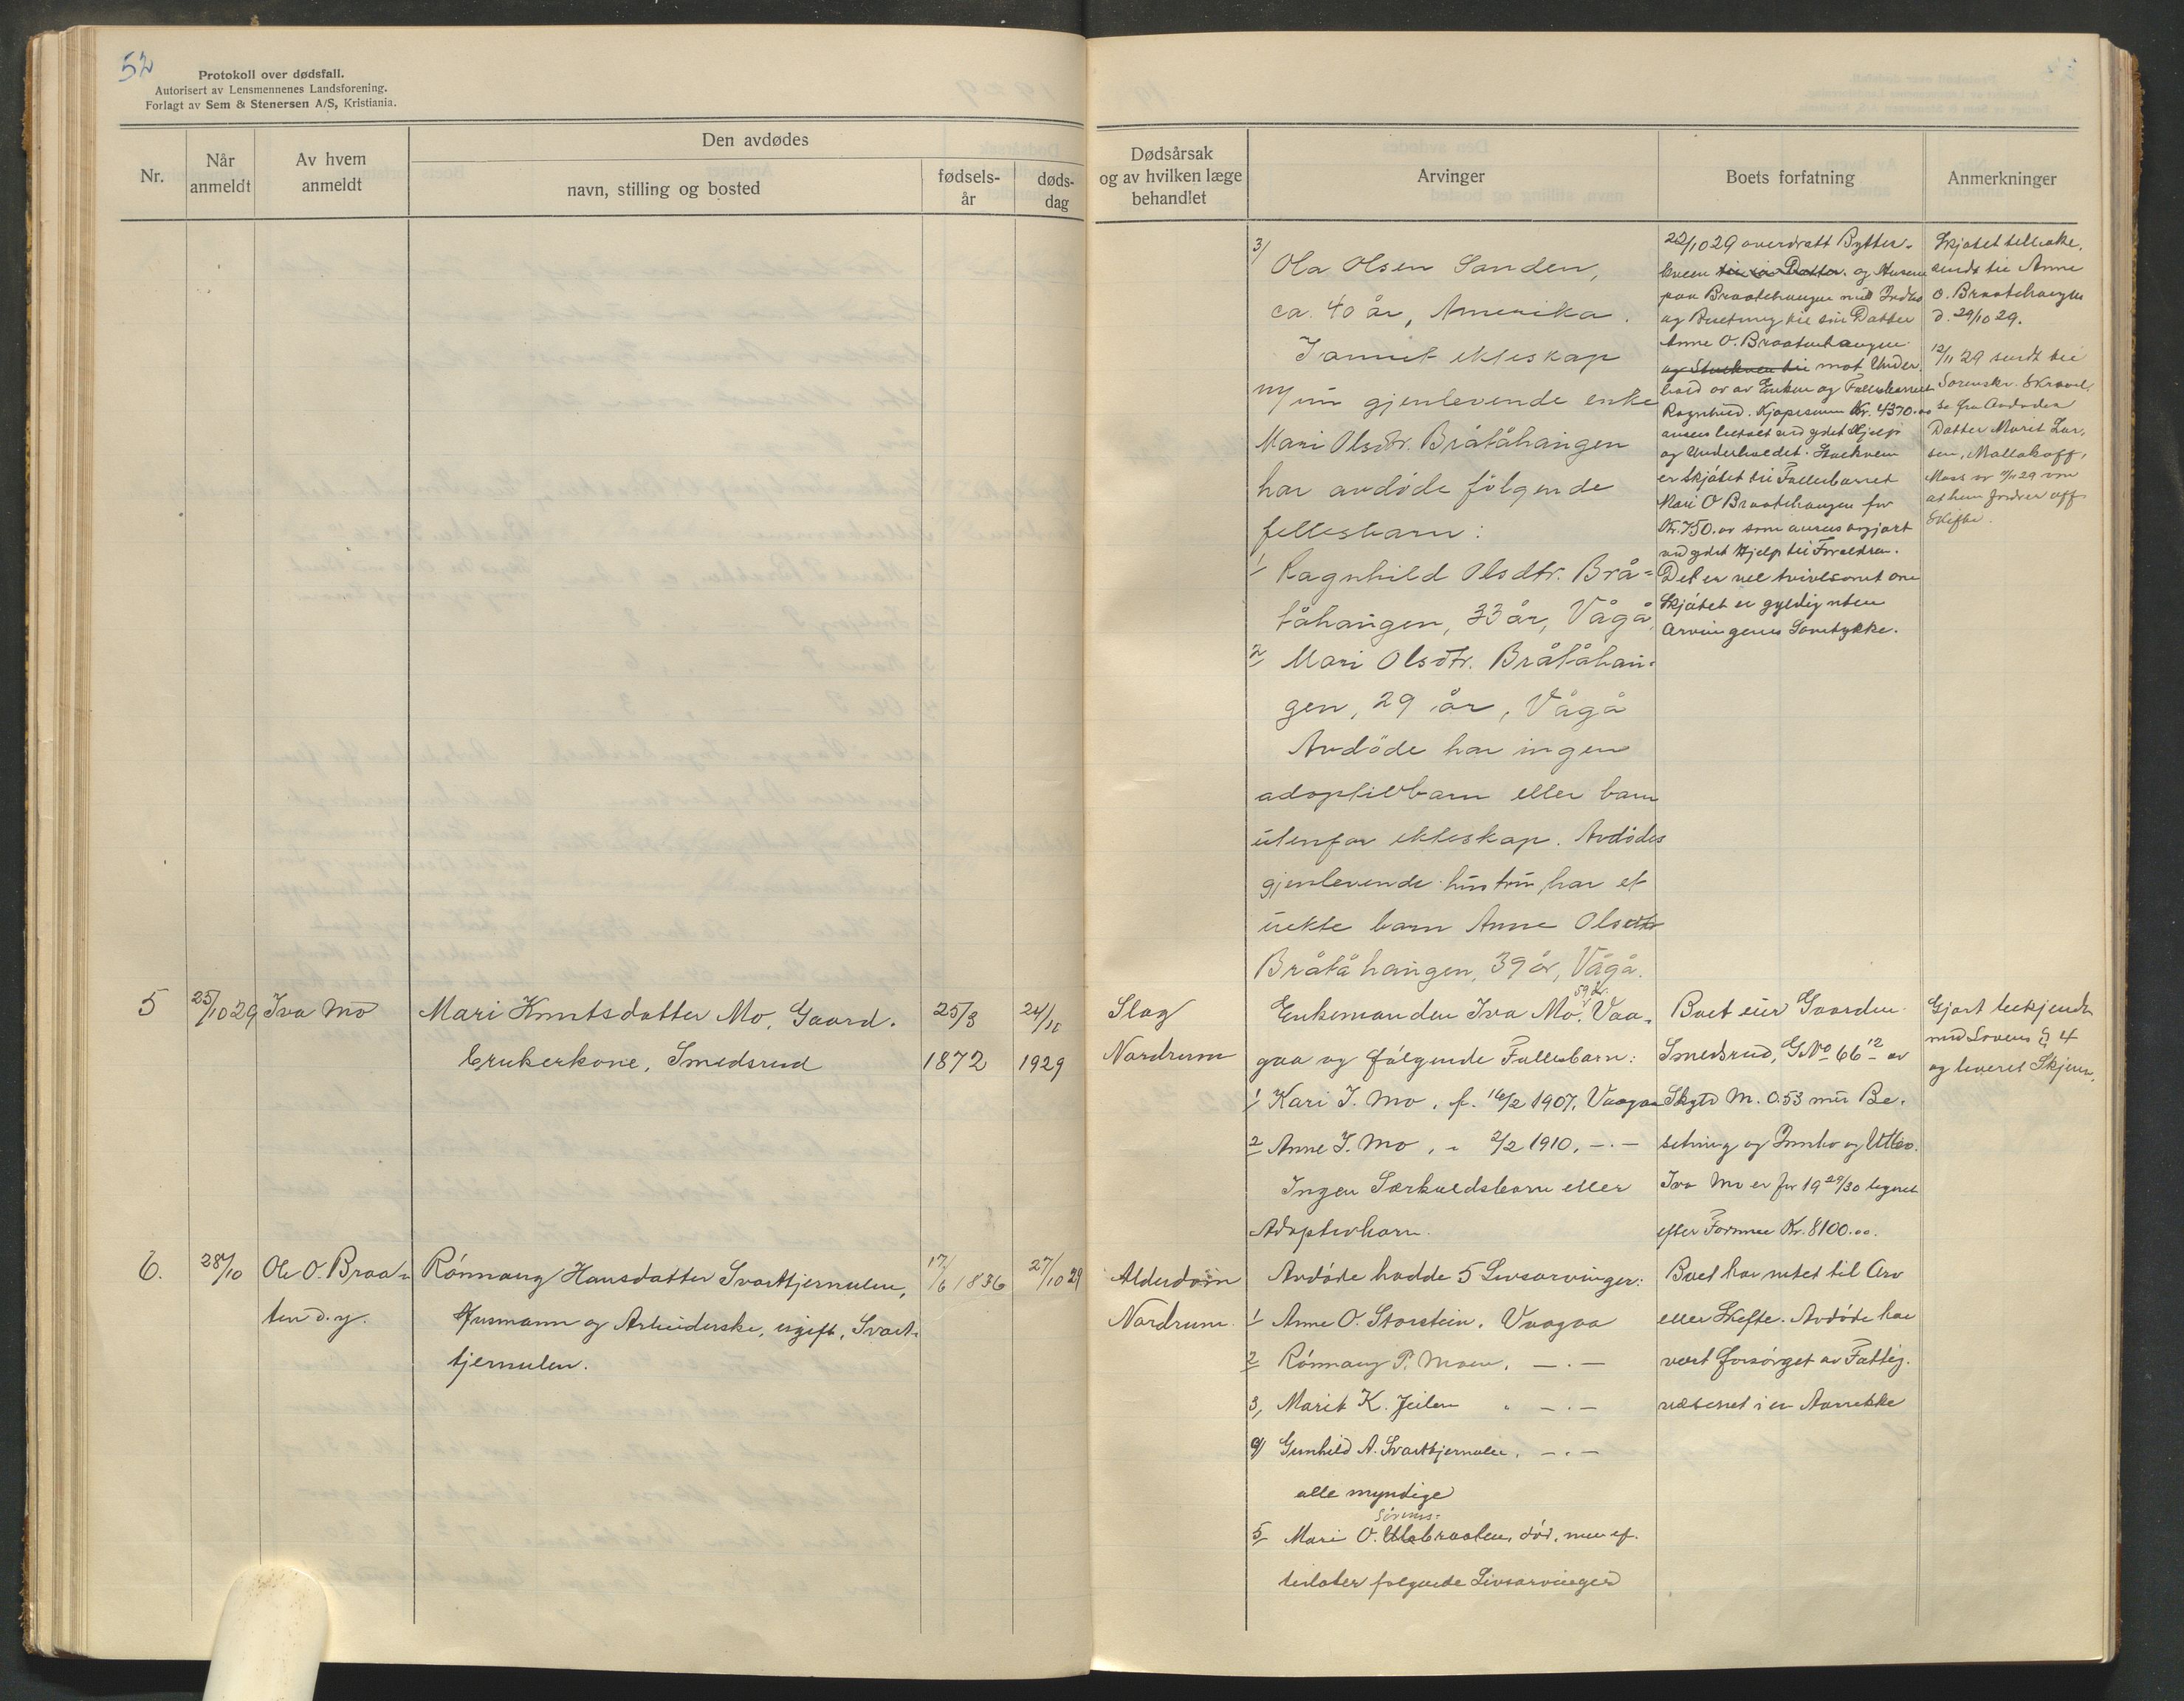 52
Protokoll over dødsfall.
Autorisert av Lensmennenes Landsforening.
Forlagt av Sem & Stenersen A/S, Kristiania.
Nr.
Når anmeldt
Av hvem anmeldt
Den avdødes
navn, stilling og bosted
fødsels-år
døds-dag
Dødsårsak og av hvilken læge behandlet
Arvinger
Boets forfatning
Anmerkninger
3/ Ola Olsen Sanden,
ca. 40 år, Amerika.
I annet ekteskap
m/ gjenlevende enke
Mari Olsdtr. Bråtåhaugen
har avdöde fölgende
fellesbarn:
1/ Ragnhild Olsdtr. Brå=
tåhaugen, 33 år, Vågå,
2/ Mari Olsdtr. Bråtåhau=
gen, 29 år, Vågå
Avdöde har ingen
adoptivbarn eller barn
utenfor ekteskap. Avdödes
gjenlevende hustru har et
uekte barn Anne Olsdtr
Bråtåhaugen, 39 år, Vågå.
22/10 29 overdratt
til sin Datter og
paa Braatehaugen med
og til sin Datter
Anne O. Braatenhaugen
mot Under-
hold av av Enken og Fellesbarnet
Ragnhild. Kjøpesum Kr. 4370.00
ydet Hjelp
og Underholdet.
er skjötet til Fellesbarnet
Mari O Braatehaugen for
Kr. 750.00 som ansees opgjort
ved ydet Hjelp til Foreldren.
Det er vel tvivlsomt om
Skjötet er gyldig uten
Arvingenes Samtykke.
Skjötet tilbake-
sendt til Anne
O. Braatehaugen
d. 29/10 29.
12/11 29 sendt til
Sorenskr. Skrivel-
se fra Avdödes
Datter Marit Lar-
sen, Mallakoff,
Mass av 29 om
at hun fordrer off.
Skifte.
5
25/10 29
Iva Mo
Mari Knutsdatter Mo, Gaard-
brukerkone, Smedsrud
25/3
1872
24/10
1929
Slag
Nordrum
Enkemanden Iva Mo, 59 år. Vaa-
gaa og fölgende Fellesbarn:
1/ Kari I. Mo, f. 16/2 1907, Vaagaa
2/ Anne I. Mo, " 2/2 1910, -.-
Ingen Særkuldsbarn eller
Adoptivbarn.
Boet eier Gaarden
Smedsrud, GNo 66 12 av
Skyld M. 0.53 med Be-
setning og Innbo og Utbo.
Iva Mo er for 19 29/30 lignet
efter Formue Kr. 8100.00.
Gjort bekjendt
med Lovens § 4
og leveret Skjema.
6.
28/10
Ole O. Braa-
ten d.y.
Rönnaug Hansdatter Svarttjernulen,
Husmann og Arbeiderske, ugift, Svart-
tjernulen.
17/6 1836
27/10 29
Alderdom
Nordrum
Avdöde hadde 5 Livsarvinger:
1/ Anne O. Storstein, Vaagaa
2/ Rönnaug P. Moen, -.-
3, Marit K. " -.-
4/ Gunhild A. Svarttjernulen, -.-
alle myndige
5/ Mari O. död, men ef-
terlater følgende Livsarvinger
Boet har intet til Arv
eller Skifte. Avdöde har
vært forsörget av Fattig-
væsenet i en Aarrekke